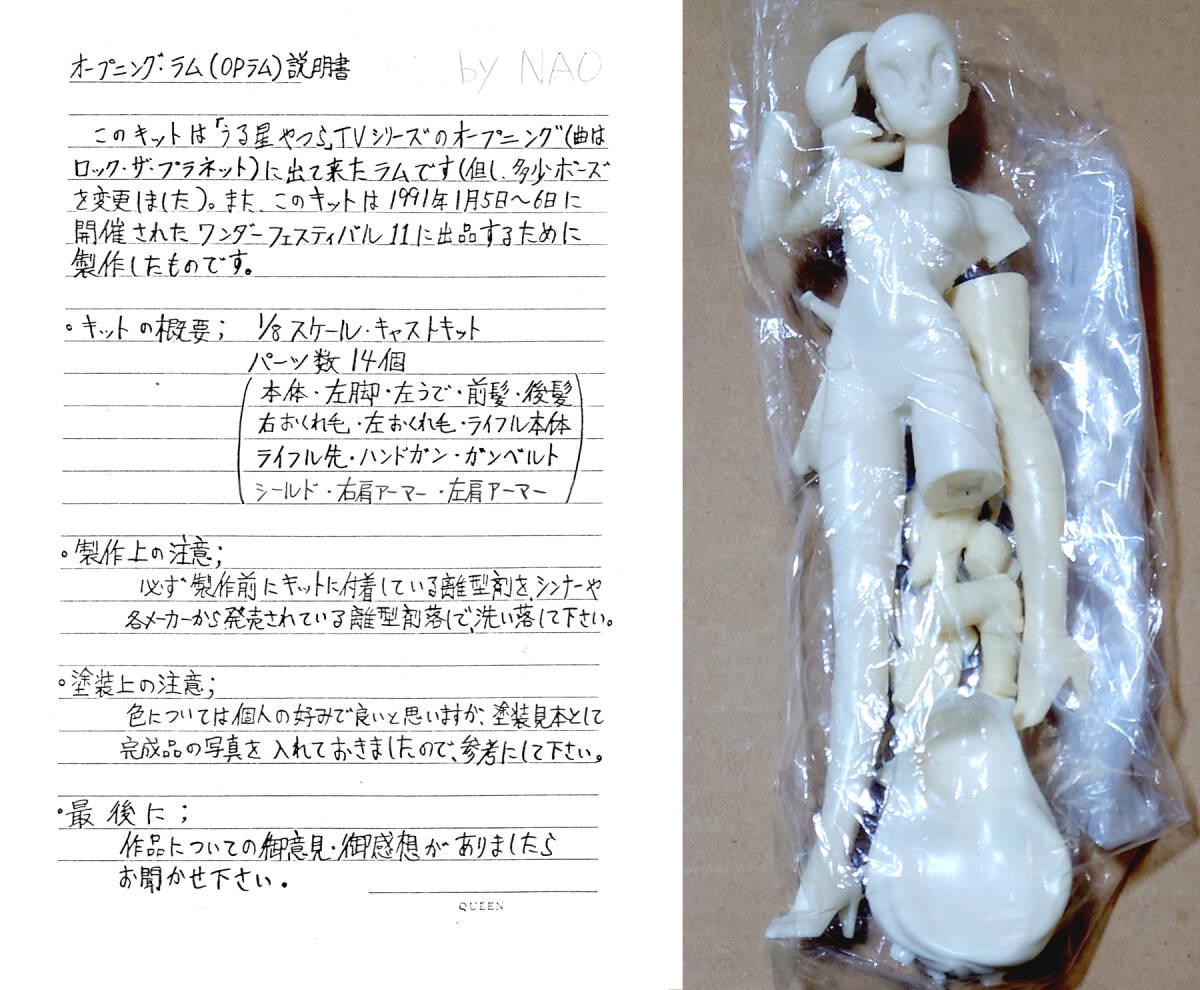 オープニング・ラム(OPラム)説明書
by NAO
このキットは「うる星やつら」TVシリーズのオープニング(曲は
ロック・ザ・プラネット)に出て来たラムです(但し、多少ポーズ
を変更しました)。また、このキットは1991年1月5日〜6日に
開催されたワンダーフェスティバル11に出品するために
製作したものです。
○キットの概要; 1/8スケール・キャストキット
パーツ数14個
(本体・左脚・左うで・前髪・後髪
右おくれ毛・左おくれ毛・ライフル本体
ライフル先・ハンドガン・ガンベルト
シールド・右肩アーマー・左肩アーマー)
○製作上の注意;
必ず製作前にキットに付着している離型剤を、シンナーや
各メーカーから発売されている離型剤落しで、洗い落して下さい。
○塗装上の注意;
色については個人の好みで良いと思いますが、塗装見本として
完成品の写真を入れておきましたので、参考にして下さい。
○最後に;
作品についての御意見・御感想がありましたら
お聞かせ下さい。
QUEEN